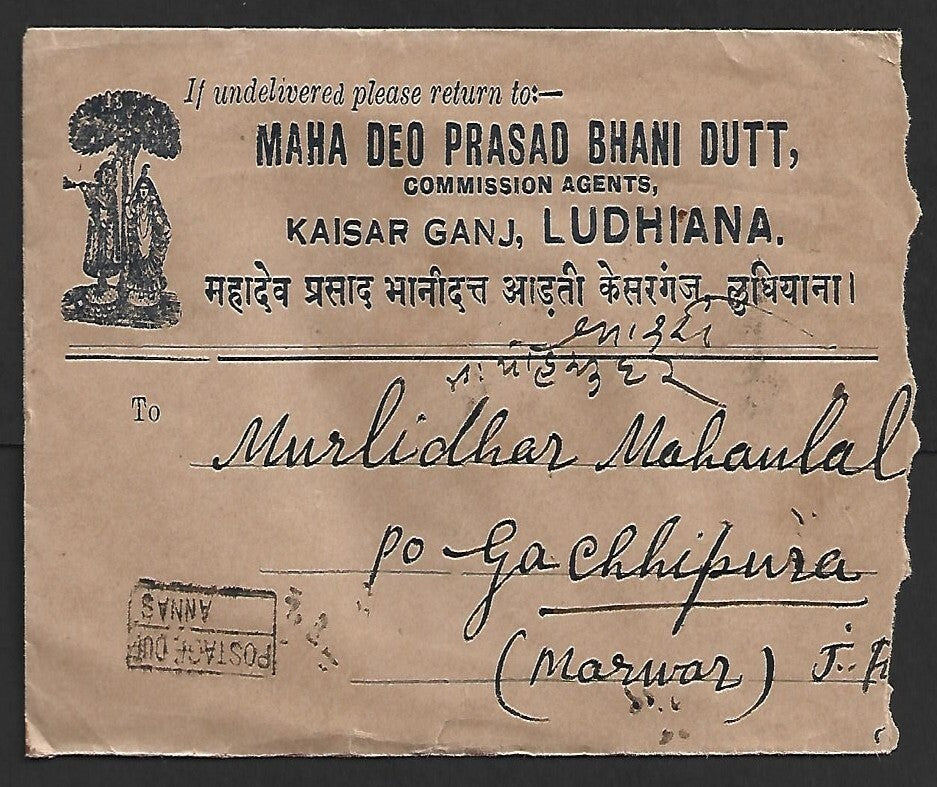 If undelivered please return to:—
MAHA DEO PRASAD BHANI DUTT,
COMMISSION AGENTS,
KAISAR GANJ, LUDHIANA.
महादेव प्रसाद भानीदत्त आड़ती केसरगंज, लुधियाना।
To
Murlidhar Mahanlal
po Gachhipura
(Marwar) J.
POSTAGE DUE
ANNAS